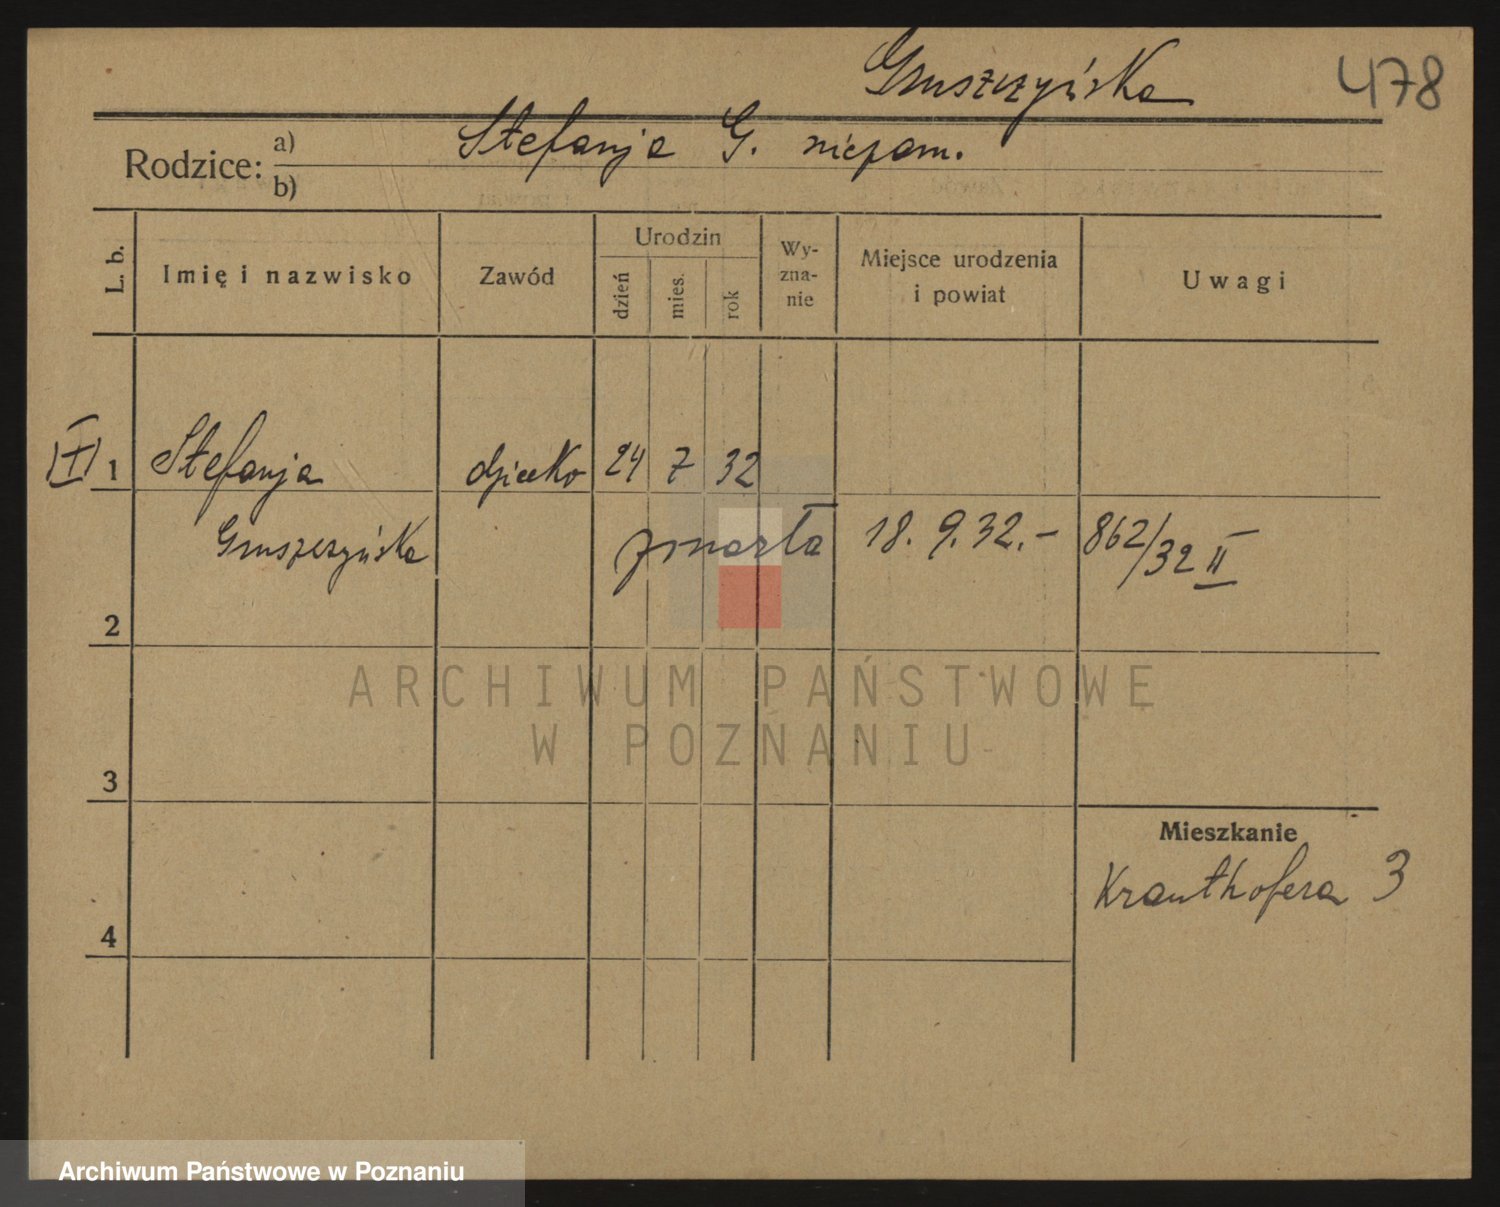 Gruszczyńska 478
Rodzice: a) Stefanja G. niezam.
b)
L. b. Imię i nazwisko Zawód Urodzin dzień mies. rok Wy-zna-nie Miejsce urodzenia i powiat Uwagi
1 Stefanja dziecko 24 7 32
Gruszczyńska zmarła 18. 9. 32.- 862/32 II
2
3
Mieszkanie
Krauthofera 3
4
ARCHIWUM PAŃSTWOWE
W POZNANIU
Archiwum Państwowe w Poznaniu